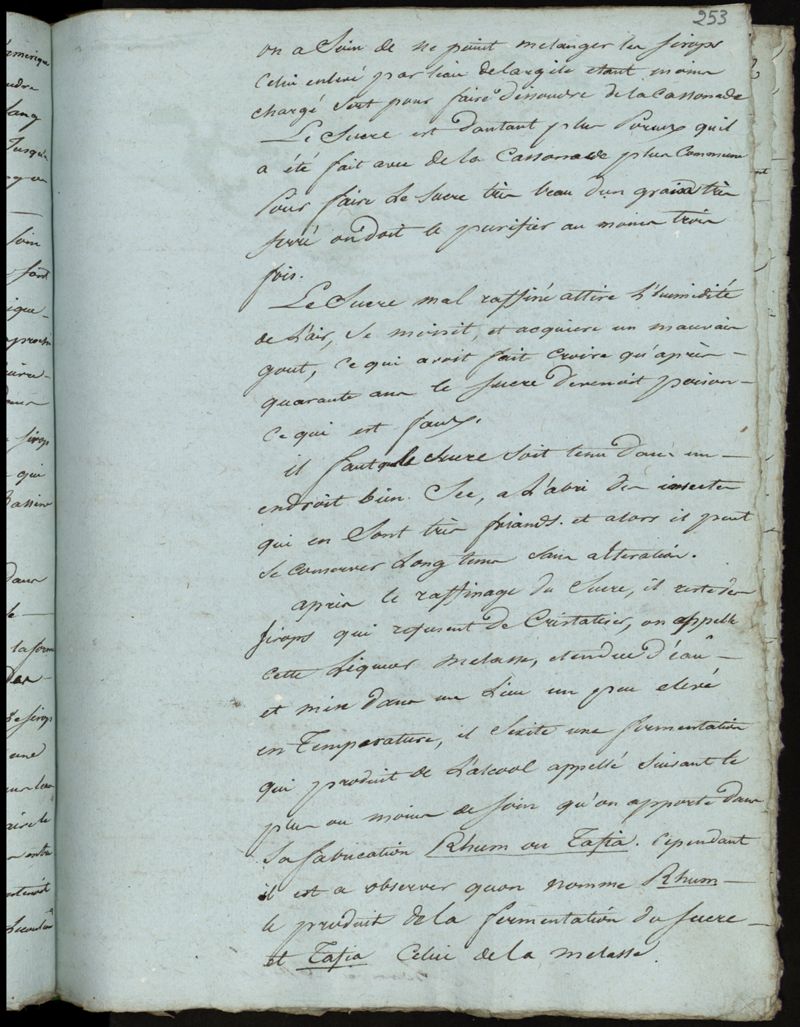 253
on a Soin de ne point melanger les sirops
Celui enlevé par l'eau de l'argile etant moins
chargé Sert pour faire dissoudre de la Cassonade
Le Sucre est d'autant plus Poreux qu'il
a été fait avec de la Cassonade plus Commune
Pour faire Le Sucre très beau d'un grain très
serré on doit le purifier au moins trois
fois.
Le Sucre mal raffiné attire L'humidité
de L'air, Se moisit, et acquiere un mauvais
gout, ce qui avoit fait Croire qu'après -
quarante ans le Sucre devenoit poison -
ce qui est faux.
il faut que le Sucre Soit tenu dans un -
endroit bien Sec, a L'abri des insectes
qui en Sont très friands. et alors il peut
Se conserver Long tems Sans alteration.
après le raffinage du Sucre, il reste des
Sirops qui refusent de Cristaliser, on appelle
cette Liqueur Melasse, etendue d'éau -
et mise dans un Lieu un peu elevé
en Temperature, il S'exite une fermentation
qui produit de L'alcool appellé Suivant le
plus ou moins de Soin qu'on apporte dans
Sa fabrication Rhum ou Tafia. Cependant
il est a observer qu'on nomme Rhum -
le produit de la fermentation du Sucre -
et Tafia Celui de la melasse.